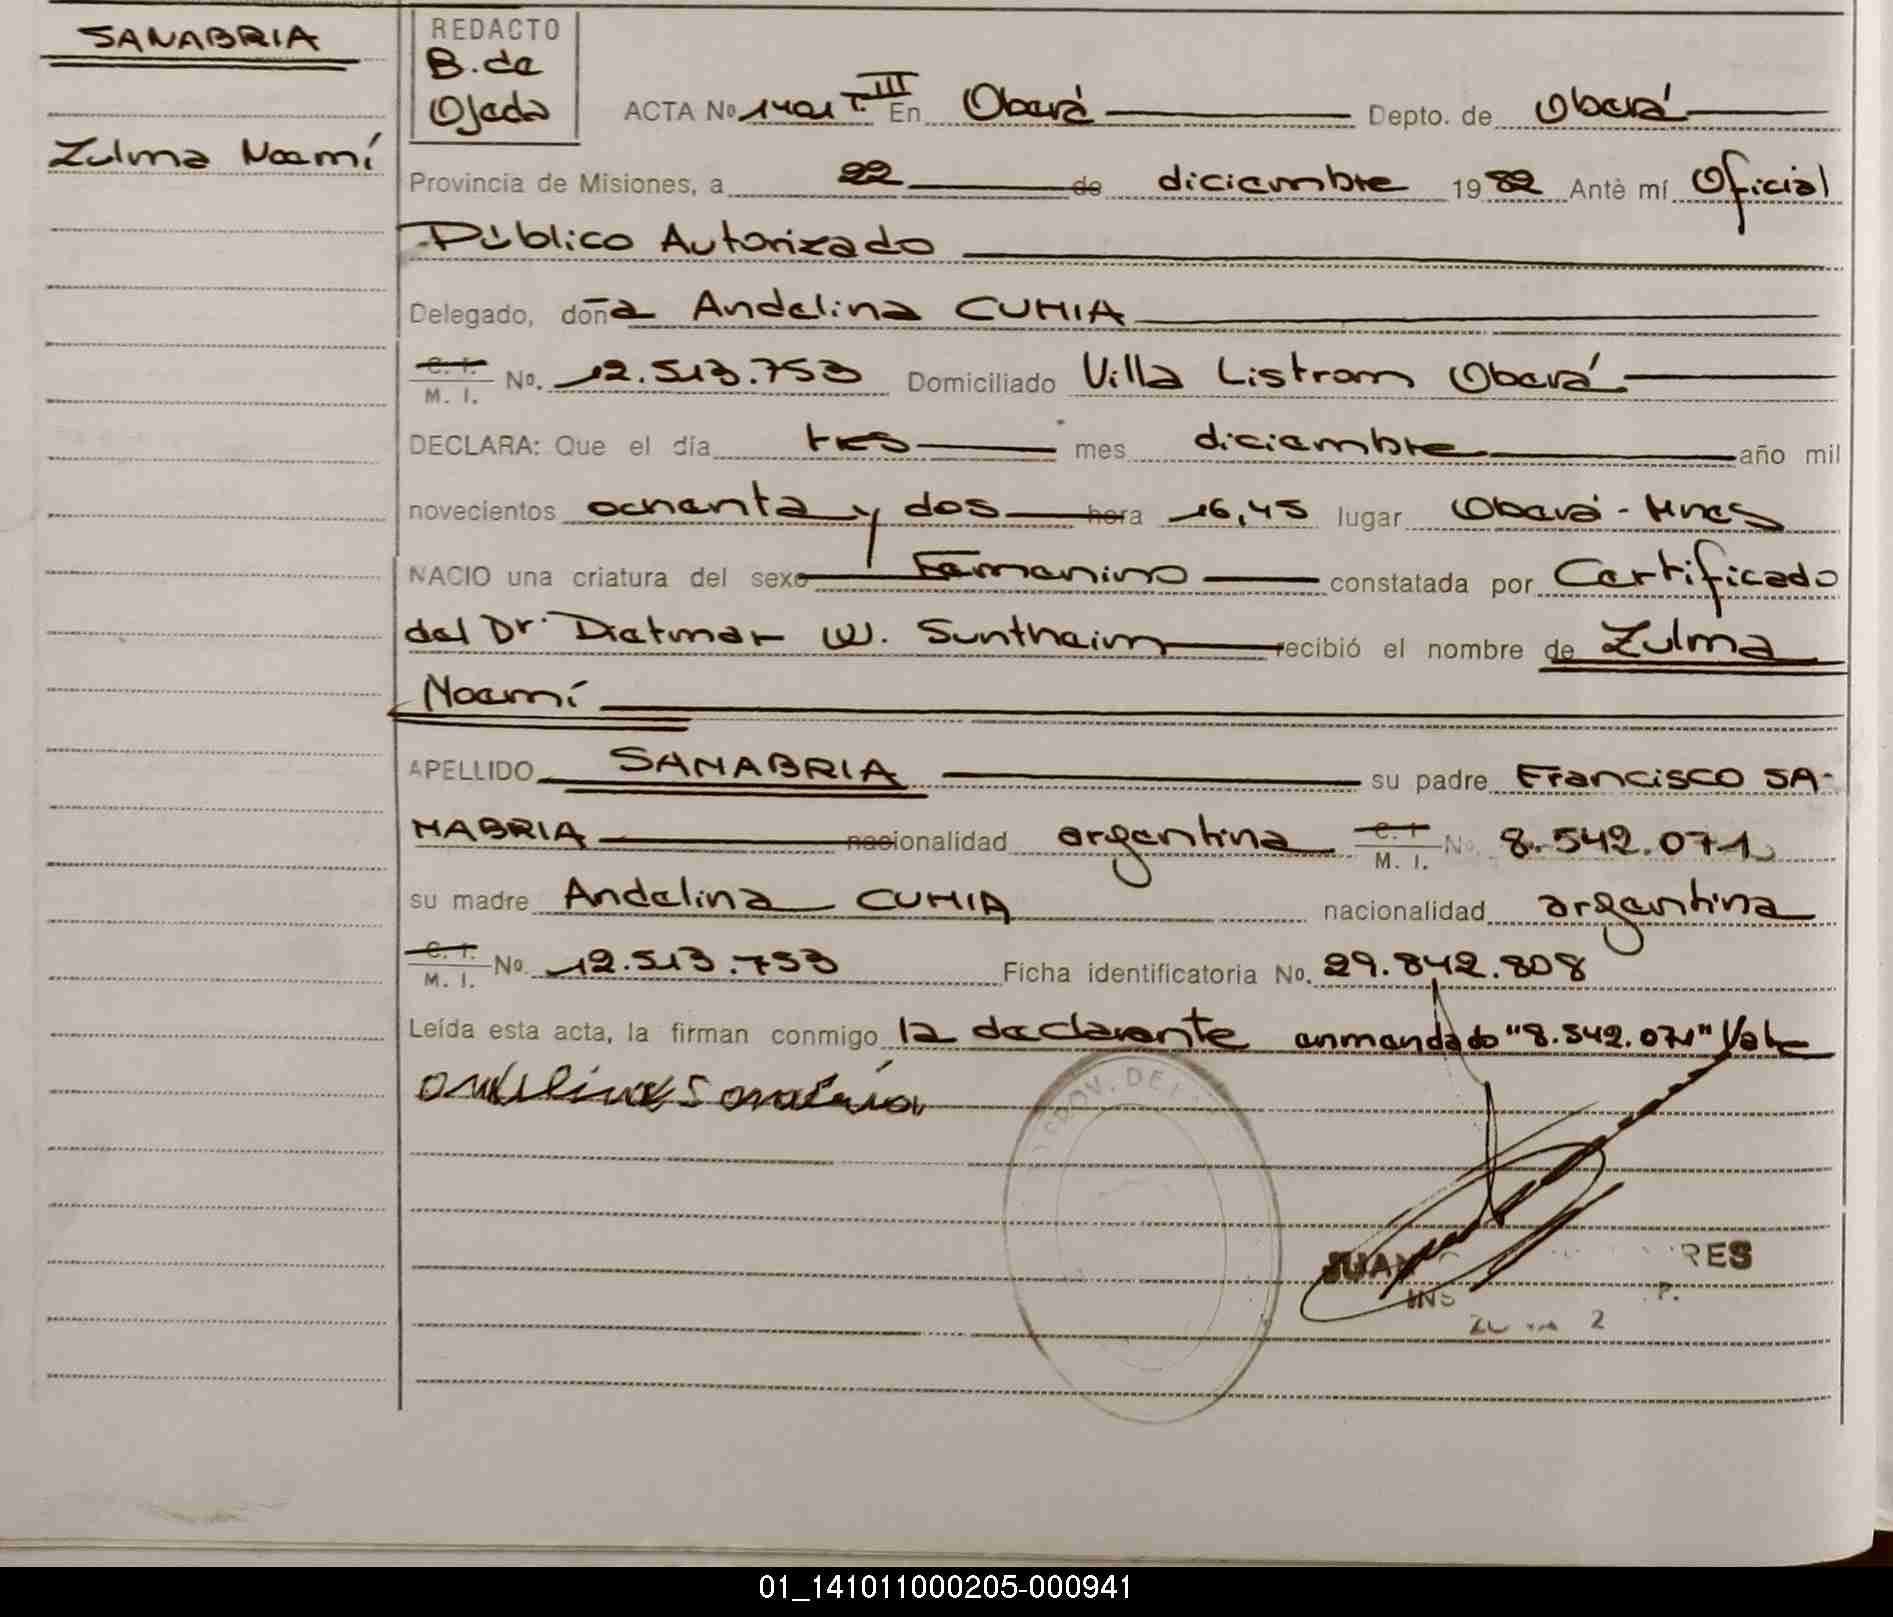 SANABRIA
Zulma Noemí
REDACTO
B. de
Ojeda
ACTA No 1401 T. III En Oberá Depto. de Oberá
Provincia de Misiones, a 22 de diciembre 1982 Ante mí Oficial
Público Autorizado
Delegado, doña Andelina CUHIA
C. I. M. I. No. 12.513.753 Domiciliado Villa Listrom Oberá
DECLARA: Que el día tres mes diciembre año mil
novecientos ochenta y dos hora 16,45 lugar Oberá - Mnes
NACIO una criatura del sexo Femenino constatada por Certificado
del Dr. Dietmar W. Suntheim recibió el nombre de Zulma
Noemí
APELLIDO SANABRIA su padre Francisco SA-
NABRIA nacionalidad argentina C. I. M. I. No. 8.542.071
su madre Andelina CUHIA nacionalidad argentina
C. I. M. I. No. 12.513.753 Ficha identificatoria No. 29.842.808
Leída esta acta, la firman conmigo la declarente enmendado "8.542.071" Vale
PROV. DE
JUAN RES
01_141011000205-000941